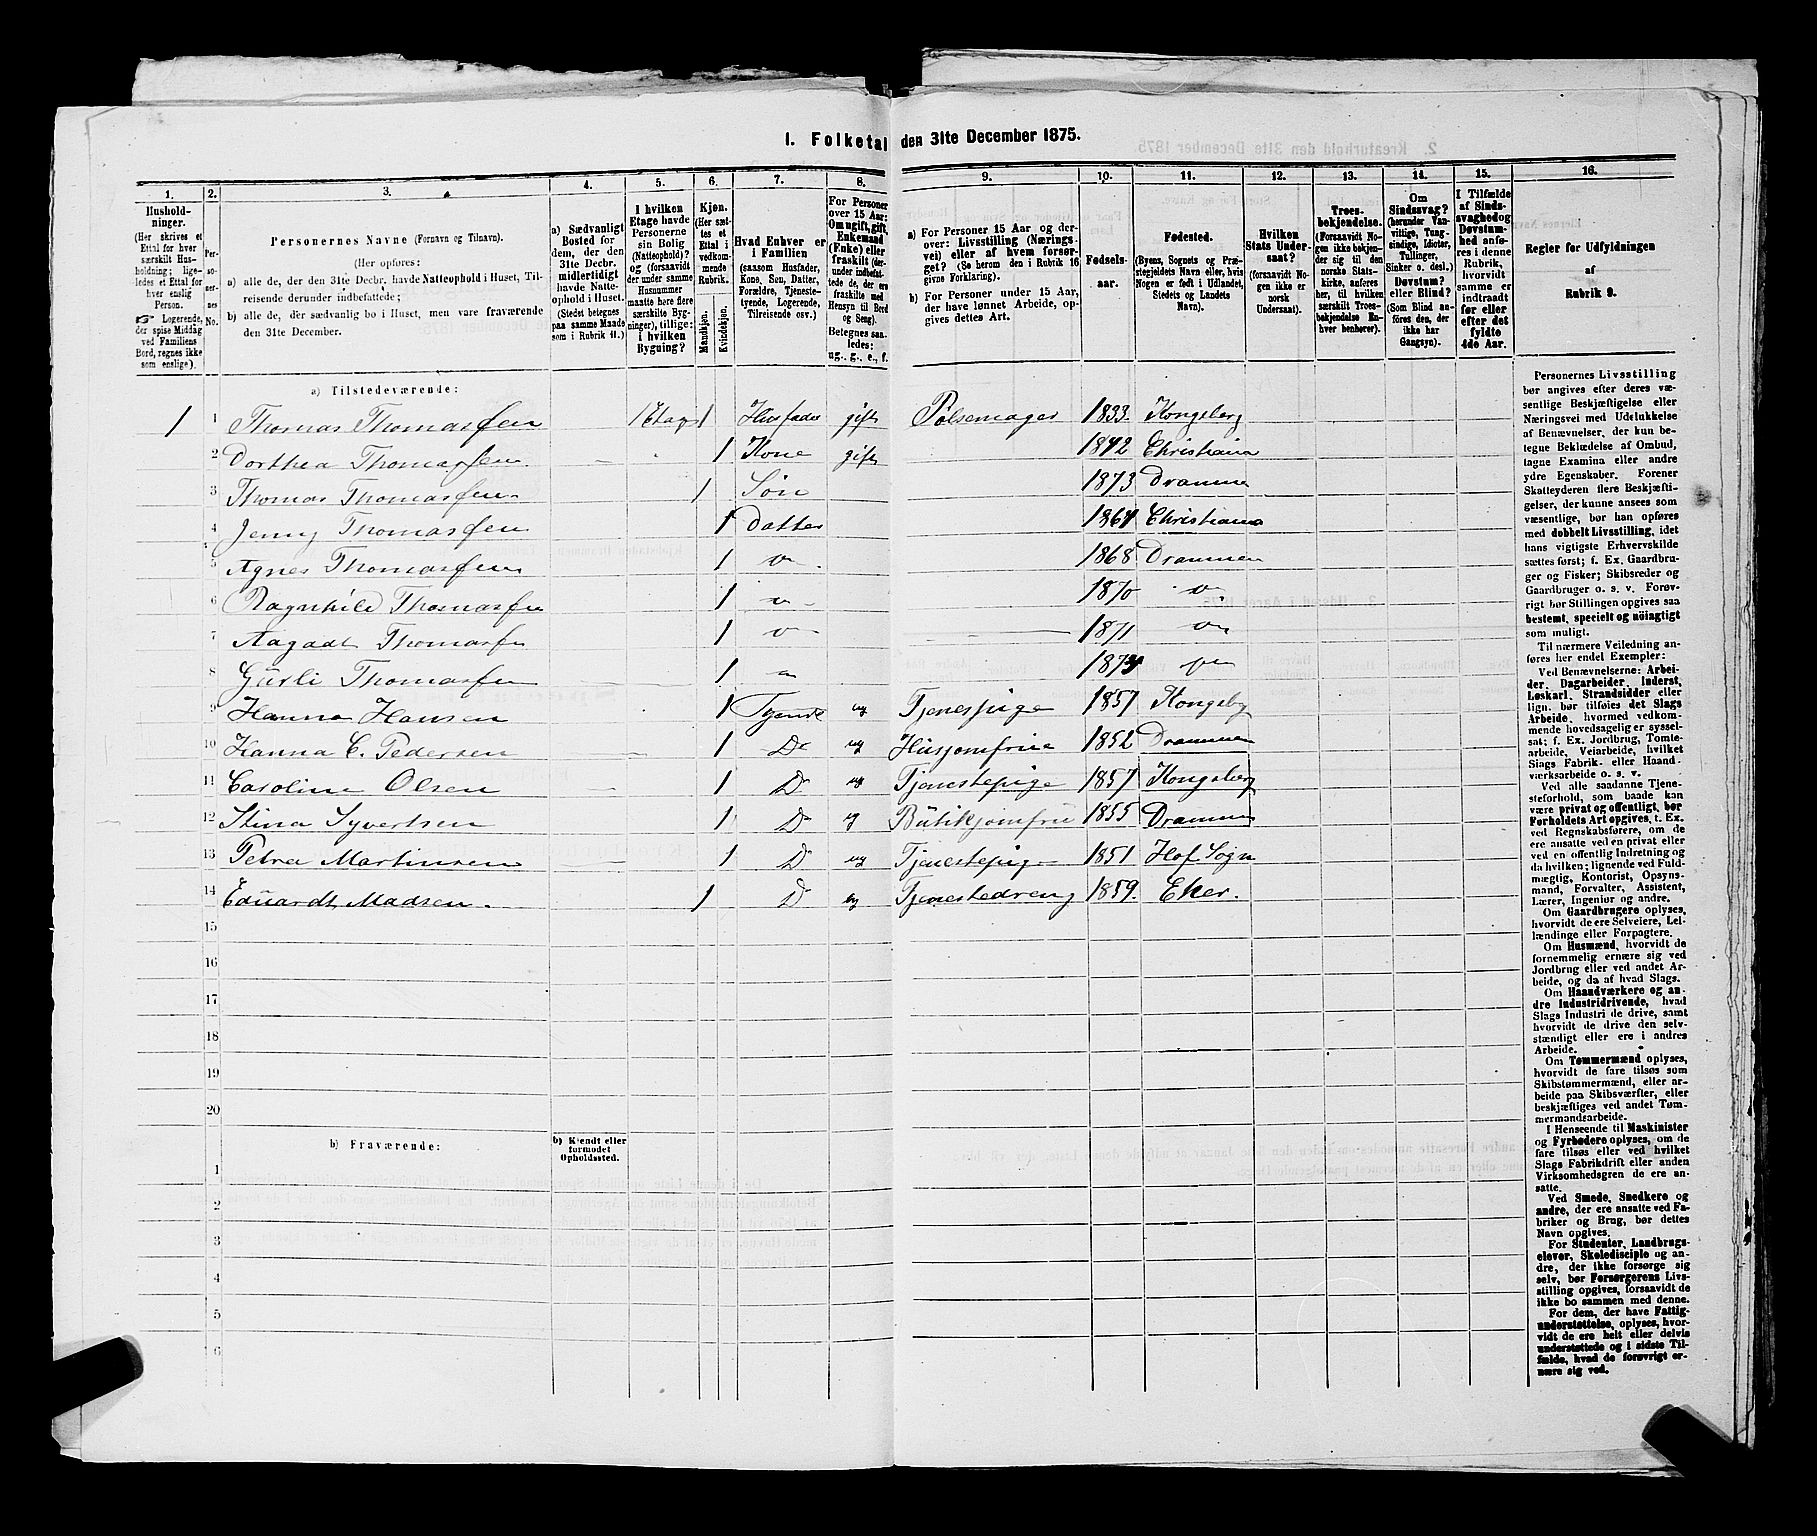 1. Folketal den 31te December 1875.
1. 2. 3. 4. 5. 6. 7. 8. 9. 10. 11. 12. 13. 14. 15. 16.
Husholdninger.
(Her skrives et
Ettal for hver
særskilt Husholdning;
ligeledes et Ettal for
hver enslig
Person.
☞ Logerende,
der spise Middag
ved Familiens
Bord, regnes ikke
som enslige).
Personernes No.
Personernes Navne (Fornavn og Tilnavn).
(Her opføres:
a) alle de, der den 31te Decbr. havde Natteophold i Huset, Tilreisende derunder indbefattede;
b) alle de, der sædvanlig bo i Huset, men vare fraværende
den 31te December.
a) Sædvanligt
Bosted for
dem, der den
31te Decbr.
midlertidigt
havde Natteophold
i Huset.
(Stedet betegnes
paa samme Maade
som i Rubrik 11.)
I hvilken
Etage havde
Personerne
sin Bolig
(Natteophold)?
og (forsaavidt
der under samme
Husnummer
maatte høre flere
særskilte Bygninger),
tillige:
i hvilken
Bygning?
Kjøn.
(Her sættes
et
Ettal i
vedkommende
Rubrik.
Mandkjøn.
Kvindekjøn.
Hvad Enhver er
i Familien
(saasom Husfader,
Kone, Søn, Datter,
Forældre, Tjenestetyende,
Logerende,
Tilreisende osv.)
For Personer
over 15 Aar:
Om ugift, gift,
Enkemand
(Enke) eller
fraskilt (derunder
indbefattede
de, der ere
fraskilte med
Hensyn til Bord
og Seng).
Betegnes saaledes:
ug., g., e., f.
a) For Personer 15 Aar og derover:
Livsstilling (Næringsvei)
eller af hvem forsørget?
(Se herom den i Rubrik 16
givne Forklaring).
b) For Personer under 15 Aar,
der have lønnet Arbeide, opgives
dettes Art.
Fødselsaar.
Fødested.
(Byens, Sognets og Præstegjeldets
Navn eller, hvis
Nogen er født i Udlandet,
Stedets og Landets
Navn).
Hvilken
Stats Undersaat?
(forsaavidt Nogen
ikke er
norsk
Undersaat).
Troesbekjendelse.
(Forsaavidt Nogen
ikke bekjender
sig til den
norske Statskirke,
anføres
her, til hvilken
særskilt Troesbekjendelse
Enhver
henhører).
Om
Sindssvag?
(herunder Vanvittige,
Tungsindige,
Idioter,
Tullinger,
Sinker o. desl.)
Døvstum?
eller Blind?
(Som Blind anføres
den, der
ikke har
Gangsyn).
I Tilfælde
af Sindssvaghed
og
Døvstumhed
anføres
i denne
Rubrik,
hvorvidt
samme er
indtraadt
før eller
efter det
fyldte
4de Aar.
Regler for Udfyldningen
af
Rubrik 9.
a) Tilstedeværende:
1 1 Thomas Thomassen 1 Etage 1 Husfader gift Pølsemager 1833 Kongsberg
2 Dorthea Thomassen 1 Kone gift 1842 Christiania
3 Thomas Thomassen 1 Søn 1873 Drammen
4 Jenny Thomassen 1 Datter 1867 Christiania
5 Agnes Thomassen 1 1868 Drammen
6 Ragnhild Thomassen 1 1870
7 Aagadt Thomassen 1 1871
8 Gürli Thomassen 1
9 Hanna Hansen 1 Tjende ug Tjenespige 1857 Kongsbg
10 Hanna C. Pedersen 1 Do ug Husjomfrue 1852 Drammen
11 Caroline Olsen 1 D ug Tjenestepige 1857 Kongsberg
12 Stina Syvertsen 1 Do ug Bütikjomfru 1855 Drammen
13 Petra Martinsen 1 D ug Tjenestepig 1851 Hof Sogn
14 Eduardt Madsen. 1 D ug Tjenestedreng 1859. Eker.
15
16
17
18
19
20
b) Fraværende:
b) Kjendt eller
formodet
Opholdssted.
1
2
3
4
5
6
Personernes Livsstilling
bør angives efter deres væsentlige
Beskjæftigelse eller
Næringsvei med Udelukkelse
af Benævnelser, der kun betegne
Beklædelse af Ombud,
tagne Examina eller andre
ydre Egenskaber. Forener
Skatteyderen flere Beskjæftigelser,
der kunne ansees som
væsentlige, bør han opføres
med dobbelt Livsstilling, idet
hans vigtigste Erhvervskilde
sættes først; f. Ex. Gaardbruger
og Fisker; Skibsreder og
Gaardbruger o. s. v. Forøvrigt
bør Stillingen opgives saa
bestemt, specielt og nöiagtigt
som muligt.
Til nærmere Veiledning anføres
her endel Exempler:
Ved Benævnelserne: Arbeider,
Dagarbeider, Inderst,
Løskarl, Strandsidder eller
lign. bør tilføies det Slags
Arbeide, hvormed vedkommende
hovedsagelig er sysselsat;
f. Ex. Jordbrug, Tomtearbeide,
Veiarbeide, hvilket
Slags Fabrik- eller Haandværksarbeide
o. s. v.
Ved alle saadanne Tjenesteforhold,
som baade kan
være privat og offentligt, bør
Forholdets Art opgives, t. Ex.
ved Regnskabsførere, om de
ere ansatte ved en privat eller
ved en offentlig Indretning og
da hvilken; lignende ved Fuldmægtig,
Kontorist, Opsynsmand,
Forvalter, Assistent,
Lærer, Ingeniør og andre.
Om Gaardbrugere oplyses,
hvorvidt de ere Selveiere, Leilændinge
eller Forpagtere.
Om Husmænd, hvorvidt de
fornemmelig ernære sig ved
Jordbrug eller ved andet Arbeide,
og da af hvad Slags.
Om Haandværkere og andre
Industridrivende, hvad
Slags Industri de drive, samt
hvorvidt de drive den selvstændigt
eller ere i andres
Arbeide.
Om Tømmermænd oplyses,
hvorvidt de fare tilsøs som
Skibstømmermænd, eller arbeide
paa Skibsværfter, eller
beskjæftiges ved andet Tømmermandsarbeide.
I Henseende til Maskinister
og Fyrbødere oplyses, om de
fare tilsøs eller ved hvilket
Slags Fabrikdrift eller anden
Virksomhedsgren de ere ansatte.
Ved Smede, Snedkere og
andre, der ere ansatte ved Fabriker
og Brug, bør dettes
Navn opgives.
For Studenter, Landbrugselever,
Skoledisciple og andre,
der ikke forsørge sig
selv, bør Forsørgerens Livsstilling
opgives, forsaavidt de
ikke bo sammen med denne.
For dem, der have Fattigunderstøttelse,
oplyses, hvorvidt
de ere helt eller delvis
understøttede og i sidste Tilfælde,
hvad de forøvrigt ernære
sig ved.